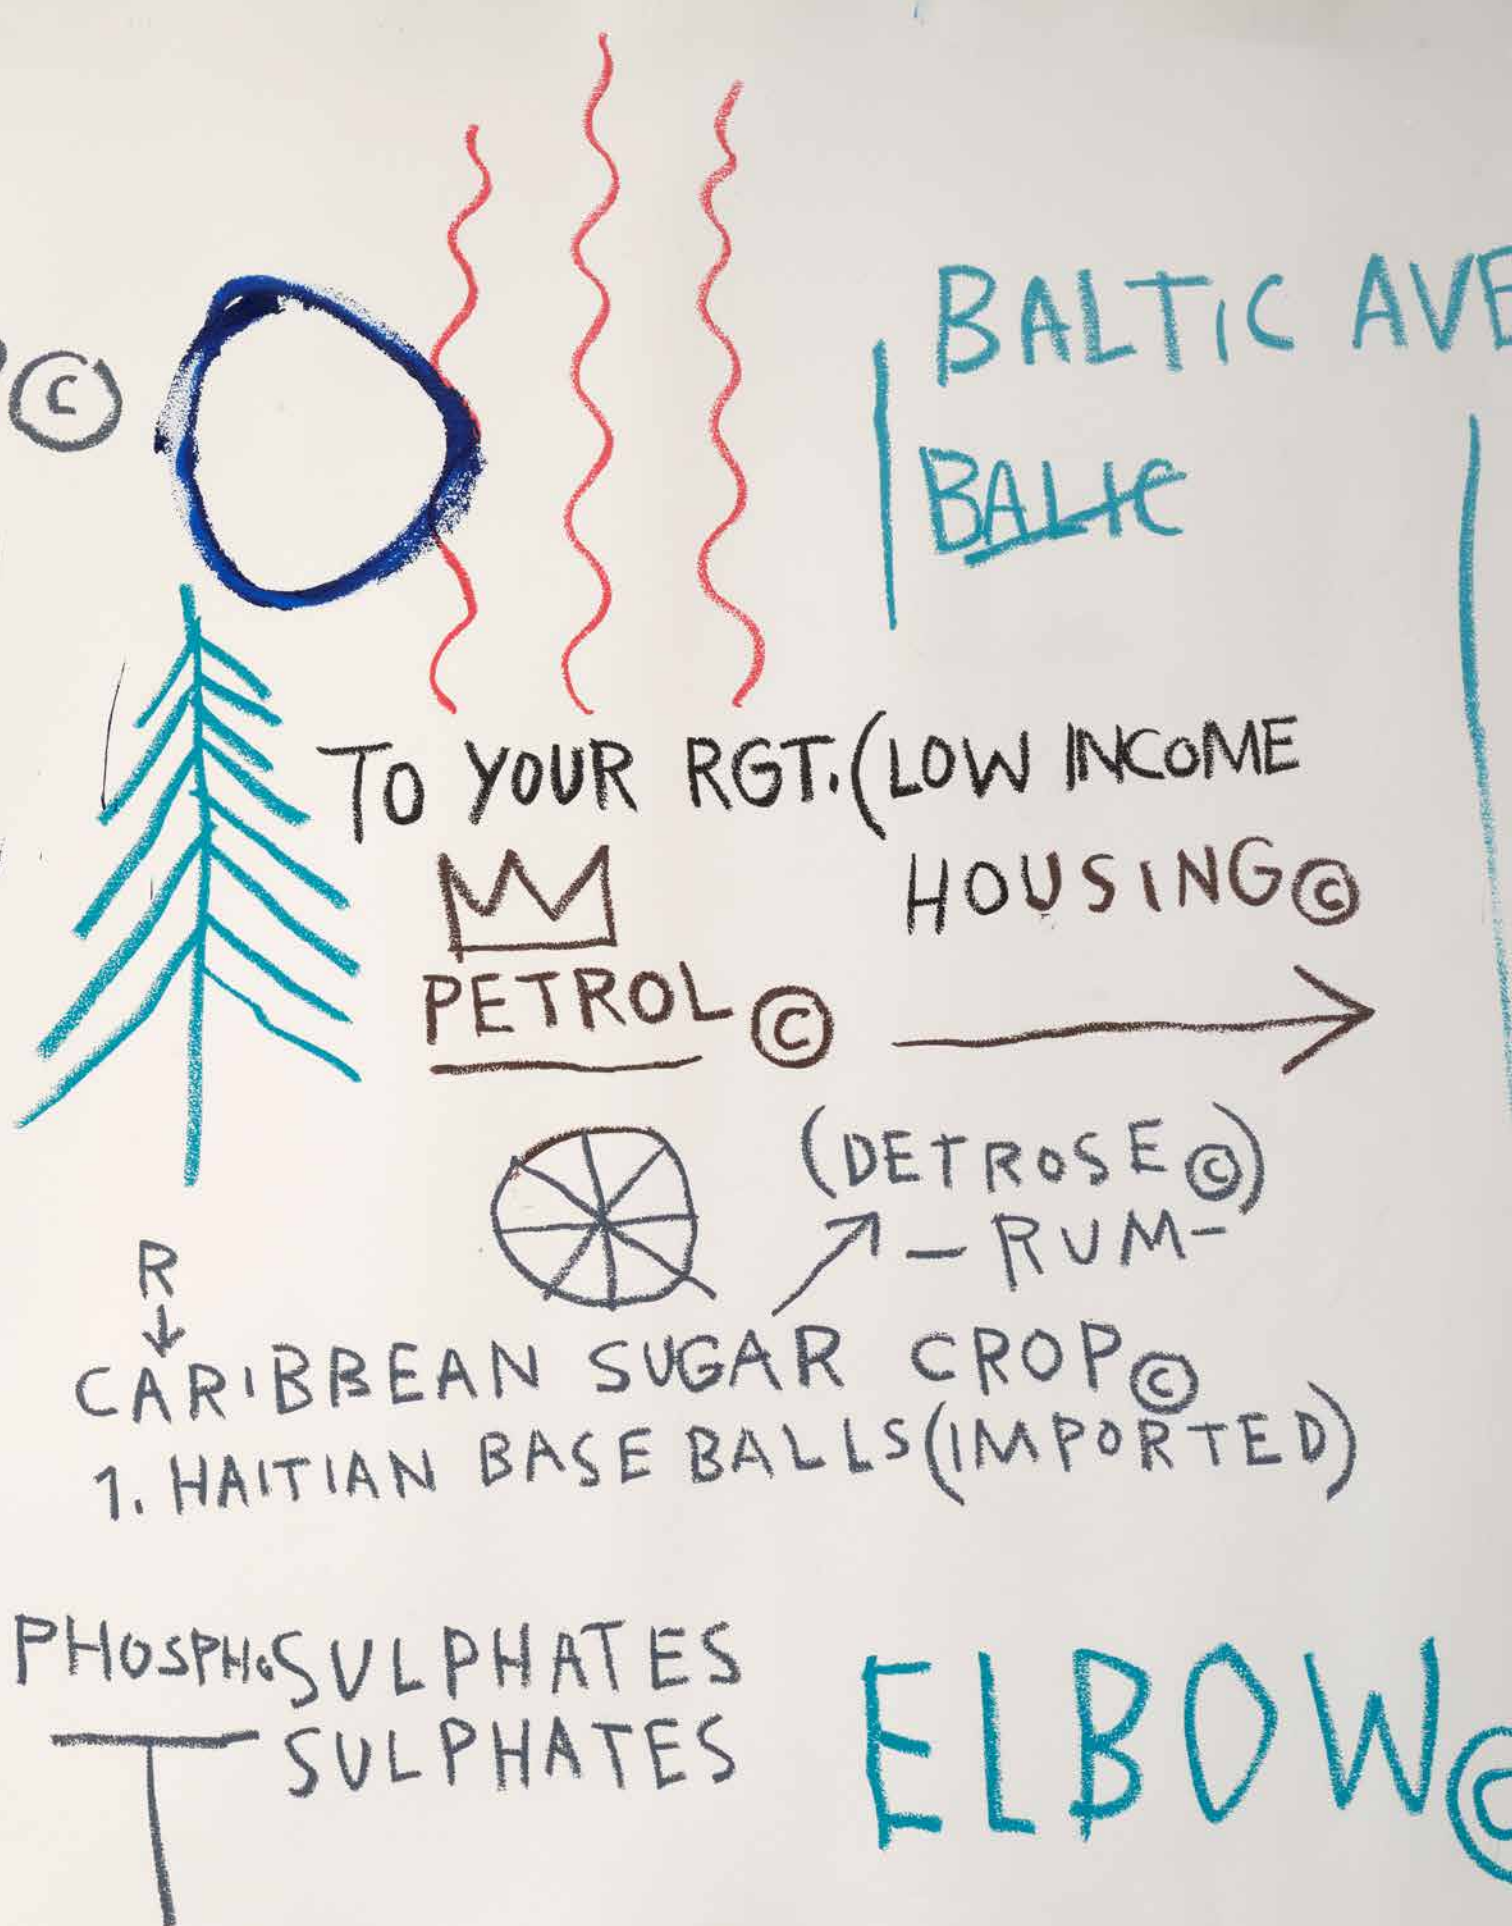 ©
BALTIC AVE
BALIC
TO YOUR RGT. (LOW INCOME
HOUSING©
PETROL ©
(DETROSE©)
- RUM-
R
CARIBBEAN SUGAR CROP©
1. HAITIAN BASE BALLS (IMPORTED)
PHOSPH. SULPHATES
SULPHATES
ELBOW©